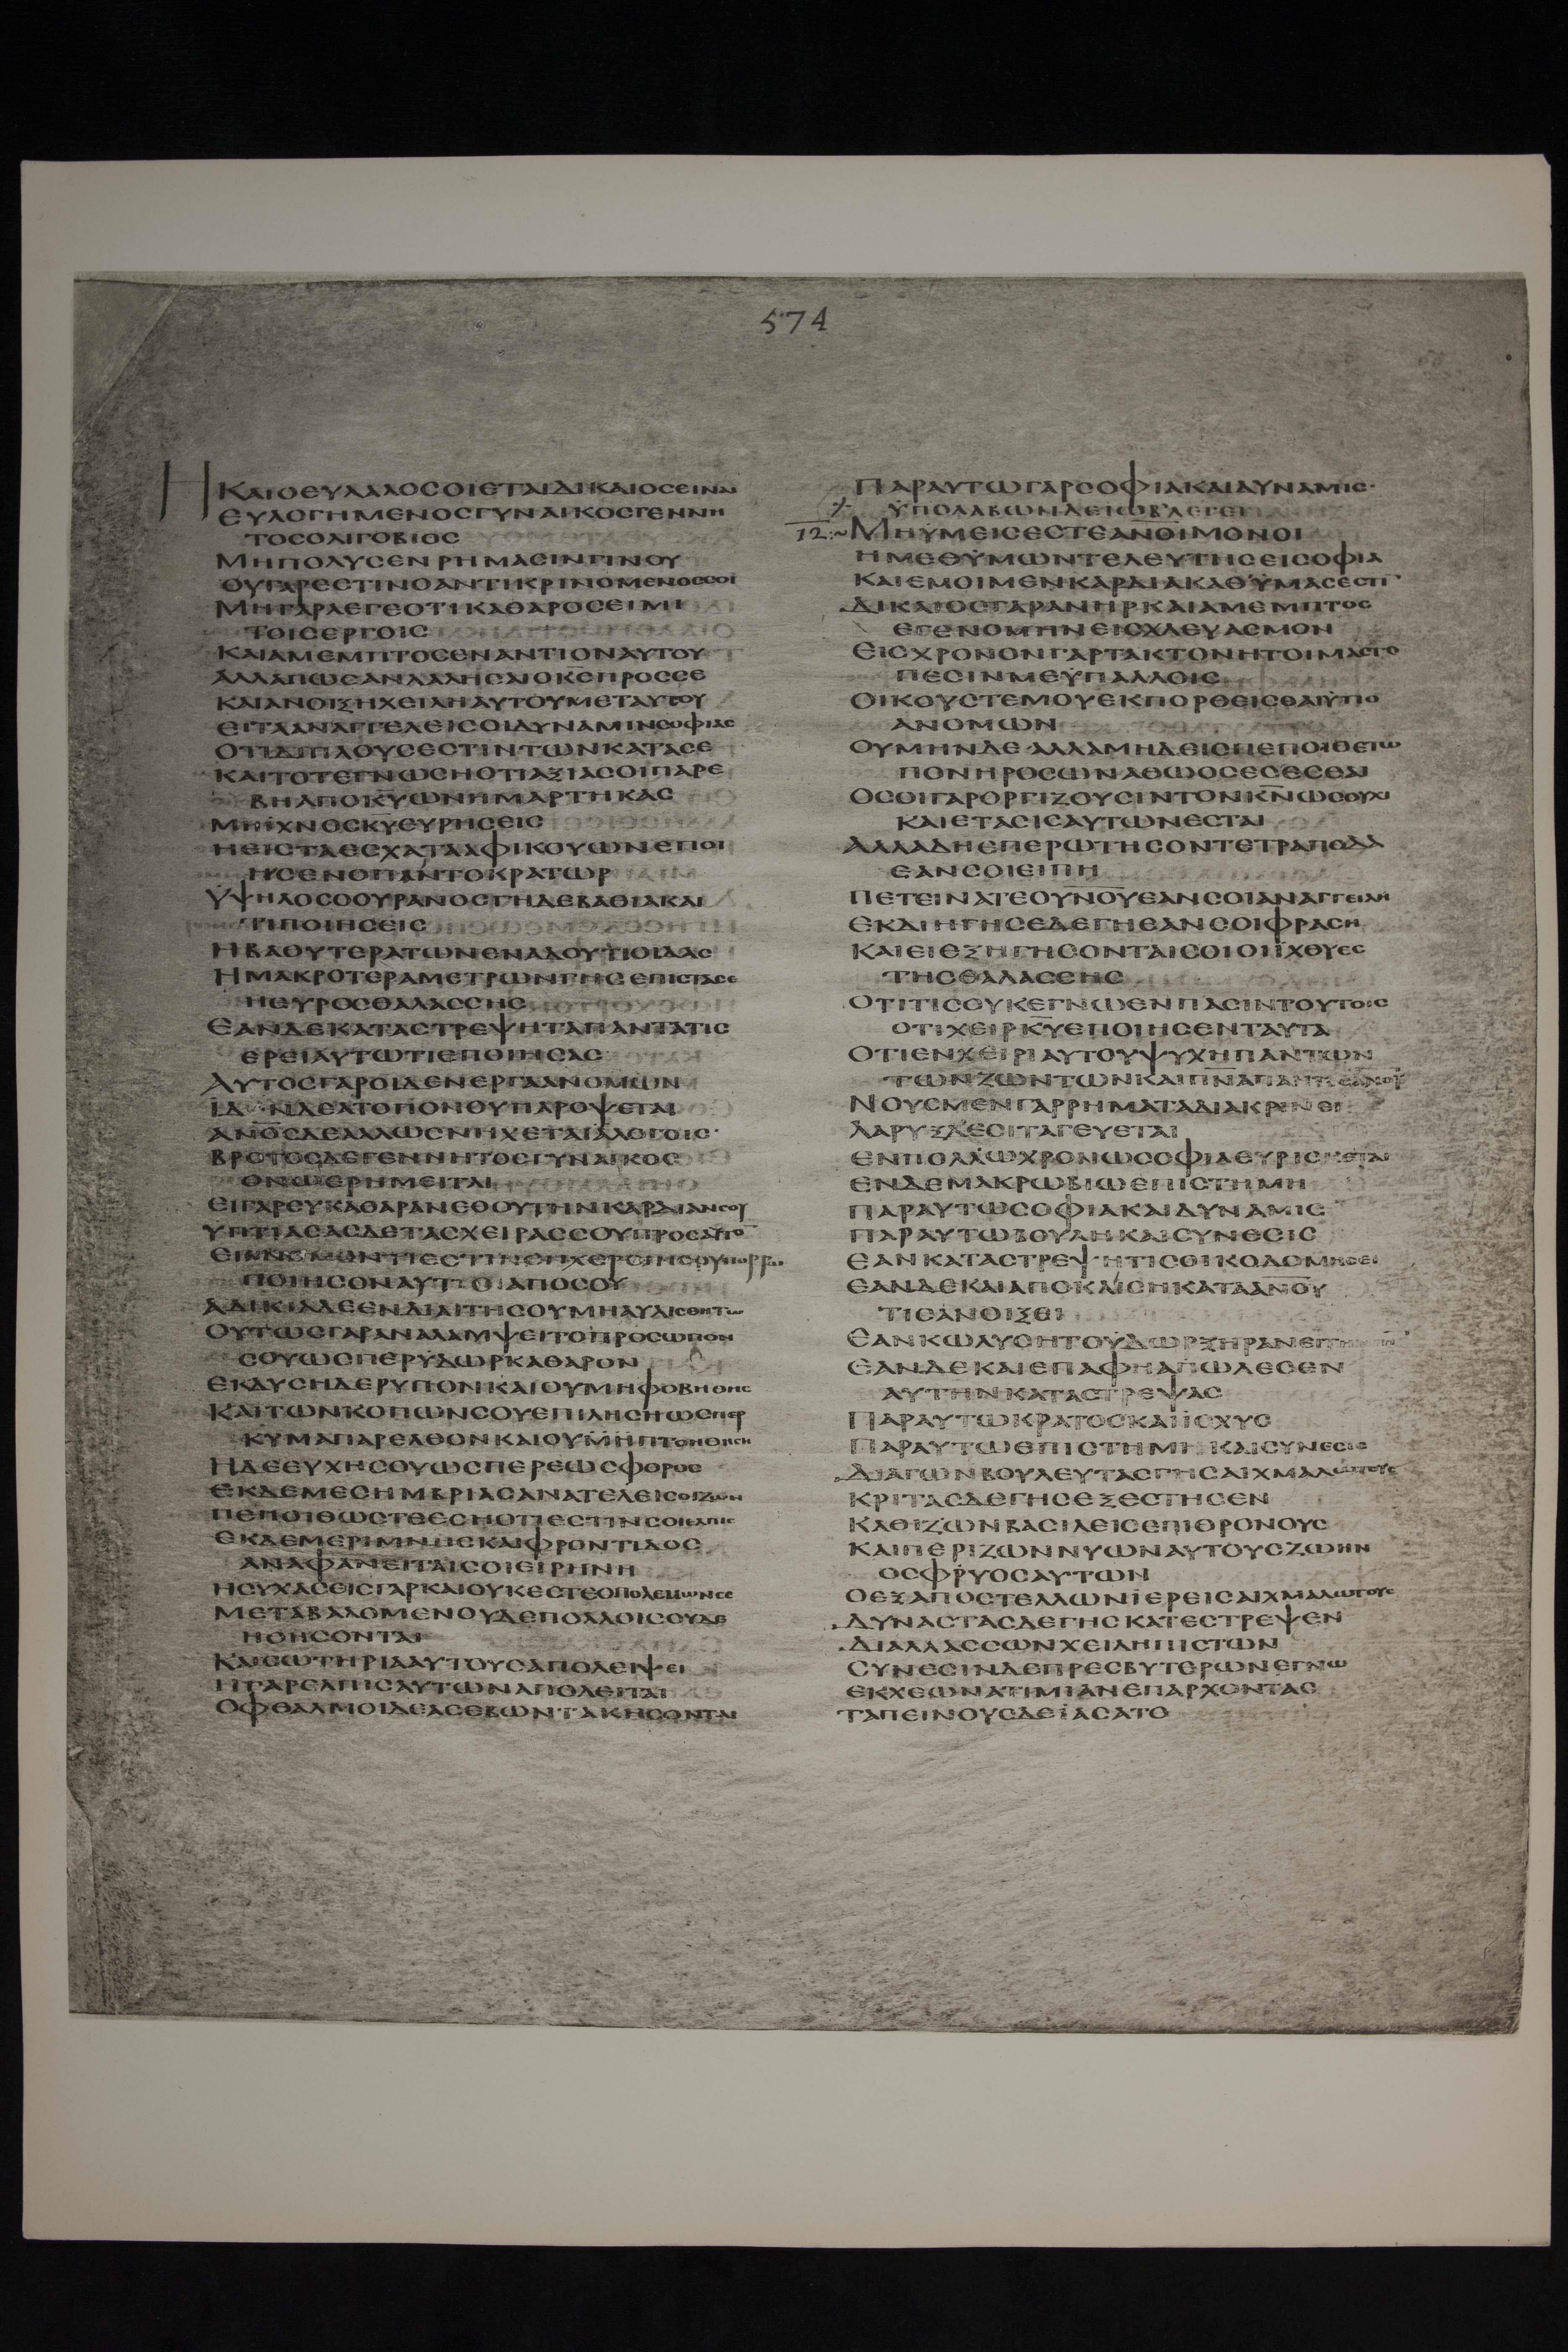 574
Η ΚΑΙΟΕΥΛΑΛΟCΟΙΕΤΑΙΔΙΚΑΙΟCΕΙΝΑΙ
ΕΥΛΟΓΗΜΕΝΟCΓΥΝΑΙΚΟCΓΕΝΝΗ
ΤΟCΟΛΙΓΟΒΙΟC
ΜΗΠΟΛΥCΕΝΡΗΜΑCΙΝΓΙΝΟΥ
ΟΥΓΑΡΕCΤΙΝΟΑΝΤΙΚΡΙΝΟΜΕΝΟCCΟΙ
ΜΗΓΑΡΛΕΓΕΟΤΙΚΑΘΑΡΟCΕΙΜΙ
ΤΟΙCΕΡΓΟΙC
ΚΑΙΑΜΕΜΠΤΟCΕΝΑΝΤΙΟΝΑΥΤΟΥ
ΑΛΛΑΠΩCΑΝΛΑΛΗCΑΙΟΚ̅C̅ΠΡΟCCΕ
ΚΑΙΑΝΟΙΞΗΧΕΙΛΗΑΥΤΟΥΜΕΤΑΥΤΟΥ
ΕΙΤΑΑΝΑΓΓΕΛΕΙCΟΙΔΥΝΑΜΙΝCΟΦΙΑC
ΟΤΙΔΙΠΛΟΥCΕCΤΙΝΤΩΝΚΑΤΑCΕ
ΚΑΙΤΟΤΕΓΝΩCΗΟΤΙΑΞΙΑCΟΙΠΑΡΕ
ΒΗΑΠΟΚ̅Υ̅ΩΝΗΜΑΡΤΗΚΑC
ΜΗΙΧΝΟCΚ̅Υ̅ΕΥΡΗCΕΙC
ΗΕΙCΤΑΕCΧΑΤΑΑΦΙΚΟΥΩΝΕΠΟΙ
ΗCΕΝΟΠΑΝΤΟΚΡΑΤΩΡ
ΫΨΗΛΟCΟΟΥΡΑΝΟCΓΗΔΕΒΑΘΙΑΚΑΙ
ΤΙΠΟΙΗCΕΙC
ΗΒΑΘΥΤΕΡΑΤΩΝΕΝΑΔΟΥΤΙΟΙΔΑC
ΗΜΑΚΡΟΤΕΡΑΜΕΤΡΩΝΓΗCΕΠΙCΤΑCΕ
ΗΕΥΡΟCΘΑΛΑCCΗC
ΕΑΝΔΕΚΑΤΑCΤΡΕΨΗΤΑΠΑΝΤΑΤΙC
ΕΡΕΙΑΥΤΩΤΙΕΠΟΙΗCΑC
ΑΥΤΟCΓΑΡΟΙΔΕΝΕΡΓΑΑΝΟΜΩΝ
ΙΔΩΝΔΕΑΤΟΠΟΝΟΥΠΑΡΟΨΕΤΑΙ
ΑΝ̅Ο̅C̅ΔΕΑΛΛΩCΝΗΧΕΤΑΙΛΟΓΟΙC·
ΒΡΟΤΟCΔΕΓΕΝΝΗΤΟCΓΥΝΑΙΚΟC
ΟΝΩΕΡΗΜΕΙΤΑΙ
ΕΙΓΑΡCΥΚΑΘΑΡΑΝΕΘΟΥΤΗΝΚΑΡΔΙΑΝCΟΥ
ΥΠΤΙΑCΑCΔΕΤΑCΧΕΙΡΑCCΟΥΠΡΟCΑΥΤΟ̅
ΠΟΙΗCΟΝΑΥΤΟΑΠΟCΟΥ
ΑΔΙΚΙΑΔΕΕΝΔΙΑΙΤΗCΟΥΜΗΑΥΛΙCΘΗΤΩ
ΟΥΤΩCΓΑΡΑΝΑΛΑΜΨΕΙΤΟΠΡΟCΩΠΟΝ
CΟΥΩCΠΕΡΫΔΩΡΚΑΘΑΡΟΝ
ΕΚΔΥCΗΔΕΡΥΠΟΝΚΑΙΟΥΜΗΦΟΒΗΘΗC
ΚΑΙΤΩΝΚΟΠΩΝCΟΥΕΠΙΛΗCΗΩCΠΕΡ
ΚΥΜΑΠΑΡΕΛΘΟΝΚΑΙΟΥΜΗΠΤΟΗΘΗCΗ
ΗΔΕΕΥΧΗCΟΥΩCΠΕΡΕΩCΦΟΡΟC
ΕΚΔΕΜΕCΗΜΒΡΙΑCΑΝΑΤΕΛΕΙCΟΙΖΩΗ
ΠΕΠΟΙΘΩCΤΕΕCΗΟΤΙΕCΤΙΝCΟΙΕΛΠΙC
ΕΚΔΕΜΕΡΙΜΝΗCΚΑΙΦΡΟΝΤΙΔΟC
ΑΝΑΦΑΝΕΙΤΑΙCΟΙΕΙΡΗΝΗ
ΗCΥΧΑCΕΙCΓΑΡΚΑΙΟΥΚΕCΤΕΟΠΟΛΕΜΩΝCΕ
ΜΕΤΑΒΑΛΟΜΕΝΟΥΔΕΠΟΛΛΟΙCΟΥΔΕ
ΗΘΗCΟΝΤΑΙ
ΚΑΙCΩΤΗΡΙΑΑΥΤΟΥCΑΠΟΛΕΙΨΕΙ
ΗΓΑΡΕΛΠΙCΑΥΤΩΝΑΠΟΛΕΙΤΑΙ
ΟΦΘΑΛΜΟΙΔΕΑCΕΒΩΝΤΑΚΗCΟΝΤΑΙ
ΠΑΡΑΥΤΩΓΑΡCΟΦΙΑΚΑΙΔΥΝΑΜΙC·
ΫΠΟΛΑΒΩΝΔΕΙΩΒΛΕΓΕΙ
12:~ ΜΗΫΜΕΙCΕCΤΕΑΝ̅Ο̅Ι̅ΜΟΝΟΙ
ΗΜΕΘΫΜΩΝΤΕΛΕΥΤΗCΕΙCΟΦΙΑ
ΚΑΙΕΜΟΙΜΕΝΚΑΡΔΙΑΚΑΘΫΜΑCΕCΤΙ̅
ΔΙΚΑΙΟCΓΑΡΑΝΗΡΚΑΙΑΜΕΜΠΤΟC
ΕΓΕΝΟΜΗΝΕΙCΧΛΕΥΑCΜΟΝ
ΕΙCΧΡΟΝΟΝΓΑΡΤΑΚΤΟΝΗΤΟΙΜΑCΤΟ
ΠΕCΙΝΜΕΫΠΑΛΛΟΙC
ΟΙΚΟΥCΤΕΜΟΥΕΚΠΟΡΘΕΙCΘΑΙΫΠΟ
ΑΝΟΜΩΝ
ΟΥΜΗΝΔΕΑΛΛΑΜΗΔΕΙCΠΕΠΟΙΘΕΤΩ
ΠΟΝΗΡΟCΩΝΑΘΩΟCΕCΕCΘΑΙ
ΟCΟΙΓΑΡΟΡΓΙΖΟΥCΙΝΤΟΝΚ̅Ν̅ΩCΟΥΧΙ
ΚΑΙΕΤΑCΙCΑΥΤΩΝΕCΤΑΙ
ΑΛΛΑΔΗΕΠΕΡΩΤΗCΟΝΤΕΤΡΑΠΟΔΑ
ΕΑΝCΟΙΕΙΠΗ
ΠΕΤΕΙΝΑΤΕΟΥ̅Ν̅Ο̅Υ̅ΕΑΝCΟΙΑΝΑΓΓΕΙΛΗ
ΕΚΔΙΗΓΗCΕΔΕΓΗΕΑΝCΟΙΦΡΑCΗ
ΚΑΙΕΙΕΞΗΓΗCΟΝΤΑΙCΟΙΟΙΪΧΘΥΕC
ΤΗCΘΑΛΑCCΗC
ΟΤΙΤΙCΟΥΚΕΓΝΩΕΝΠΑCΙΝΤΟΥΤΟΙC
ΟΤΙΧΕΙΡΚ̅Υ̅ΕΠΟΙΗCΕΝΤΑΥΤΑ
ΟΤΙΕΝΧΕΙΡΙΑΥΤΟΥΨΥΧΗΠΑΝΤΩΝ
ΤΩΝΖΩΝΤΩΝΚΑΙΠ̅Ν̅Α̅ΠΑΝΤΟCΑΝ̅Ο̅Υ̅
ΝΟΥCΜΕΝΓΑΡΡΗΜΑΤΑΔΙΑΚΡΙΝΕΙ
ΛΑΡΥΞΔΕCΙΤΑΓΕΥΕΤΑΙ
ΕΝΠΟΛΛΩΧΡΟΝΩCΟΦΙΑΕΥΡΙCΚΕΤΑΙ
ΕΝΔΕΜΑΚΡΩΒΙΩΕΠΙCΤΗΜΗ
ΠΑΡΑΥΤΩCΟΦΙΑΚΑΙΔΥΝΑΜΙC
ΠΑΡΑΥΤΩΒΟΥΛΗΚΑΙCΥΝΕCΙC
ΕΑΝΚΑΤΑCΤΡΕΨΗΤΙCΟΙΚΟΔΟΜΗCΕΙ
ΕΑΝΔΕΚΑΙΑΠΟΚΛΙCΗΚΑΤΑΑΝ̅Ο̅Υ̅
ΤΙCΑΝΟΙΞΕΙ
ΕΑΝΚΩΛΥCΗΤΟΫΔΩΡΞΗΡΑΝΕΙΤΗΝΓΗΝ
ΕΑΝΔΕΚΑΙΕΠΑΦΗΑΠΩΛΕCΕΝ
ΑΥΤΗΝΚΑΤΑCΤΡΕΨΑC
ΠΑΡΑΥΤΩΚΡΑΤΟCΚΑΙΪCΧΥC
ΠΑΡΑΥΤΩΕΠΙCΤΗΜΗΚΑΙCΥΝΕCΙC
ΔΙΑΓΩΝΒΟΥΛΕΥΤΑCΓΗCΑΙΧΜΑΛΩΤΟΥC
ΚΡΙΤΑCΔΕΓΗCΕΞΕCΤΗCΕΝ
ΚΑΘΙΖΩΝΒΑCΙΛΕΙCΕΠΙΘΡΟΝΟΥC
ΚΑΙΠΕΡΙΖΩΝΝΥΩΝΑΥΤΟΥCΖΩΗΝ
ΟCΦΡΥΟCΑΥΤΩΝ
ΟΕΞΑΠΟCΤΕΛΛΩΝΪΕΡΕΙCΑΙΧΜΑΛΩΤΟΥC
ΔΥΝΑCΤΑCΔΕΓΗCΚΑΤΕCΤΡΕΨΕΝ
ΔΙΑΛΛΑCCΩΝΧΕΙΛΗΠΙCΤΩΝ
CΥΝΕCΙΝΔΕΠΡΕCΒΥΤΕΡΩΝΕΓΝΩ
ΕΚΧΕΩΝΑΤΙΜΙΑΝΕΠΑΡΧΟΝΤΑC
ΤΑΠΕΙΝΟΥCΔΕΪΑCΑΤΟ